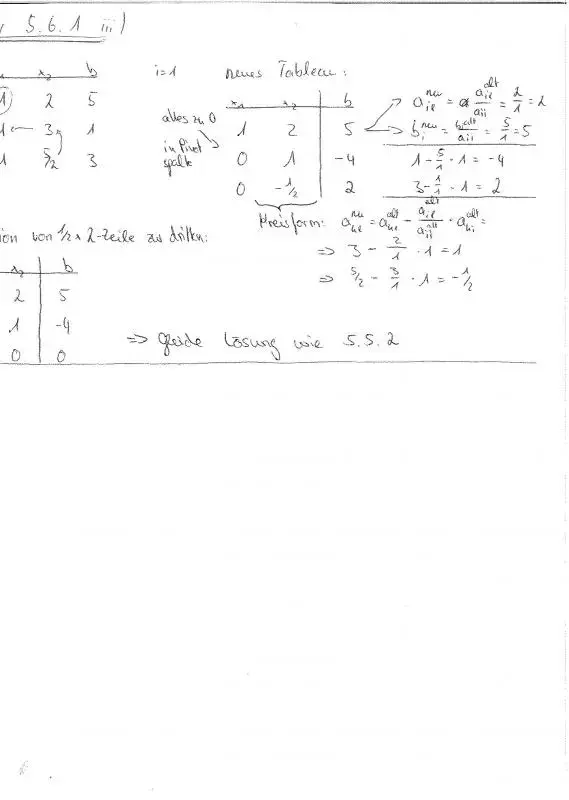 5.6.1 iii)
x₂ b i=1 neues Tableau:
1 2 5
1 3 1
1 5/2 3
alles zu 0 in Pivot spalte
x₁ x₂ b
1 2 5
0 1 -4
0 -1/2 2
a_il^neu = a_il^alt / a_ii = 2/1 = 2
b_i^neu = b_i^alt / a_ii = 5/1 = 5
1 - 5/1 · 1 = -4
3 - 1/1 · 1 = 2
Kreisform: a_kl^neu = a_kl^alt - a_il^alt / a_ii^alt · a_ki^alt =
=> 3 - 2/1 · 1 = 1
=> 5/2 - 3/1 · 1 = -1/2
ion von 1/2 x 2-Zeile zu dritten:
x₂ b
2 5
1 -4
0 0
=> gleiche Lösung wie 5.5.2